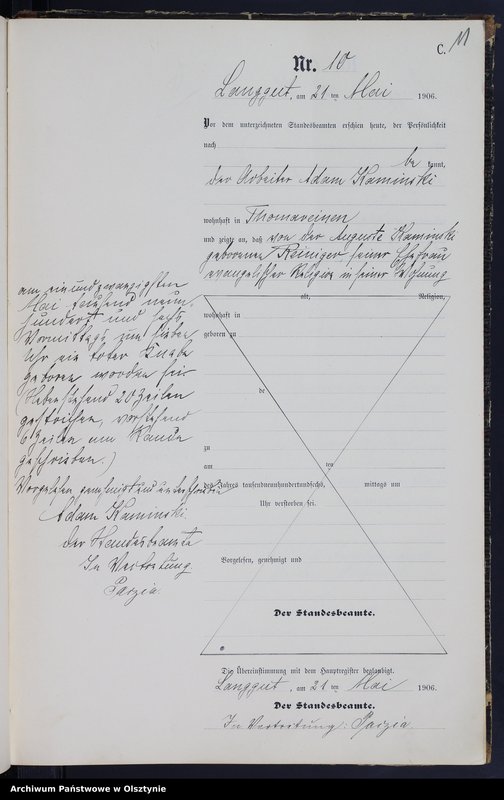 C. 11
Nr. 10
Langgut, am 21 ten Mai 1906.
Vor dem unterzeichneten Standesbeamten erschien heute, der Persönlichkeit
nach
be kannt,
der Arbeiter Adam Kaminski
wohnhaft in Thomareinen
und zeigte an, daß von der Auguste Kaminski
geborenen Reiniger seiner Ehefrau
evangelischer Religion in seiner Wohnung
alt, Religion,
wohnhaft in
geboren zu
de
zu
am ten
des Jahres tausendneunhundertundsechs, mittags um
Uhr verstorben sei.
Vorgelesen, genehmigt und
Der Standesbeamte.
am einundzwanzigsten
Mai tausend neun-
hundert und sechs
Vormittags um sieben
Uhr ein toter Knabe
geboren worden sei
(Nebenstehend 20 Zeilen
gestrichen, vorstehend
6 Zeilen am Rande
geschrieben.)
Vorgelesen genehmigt und unterschrieben
Adam Kaminski
Der Standesbeamte
In Vertretung.
Parzia.
Die Übereinstimmung mit dem Hauptregister beglaubigt.
Langgut, am 21 ten Mai 1906.
Der Standesbeamte.
In Vertretung: Parzia.
Archiwum Państwowe w Olsztynie